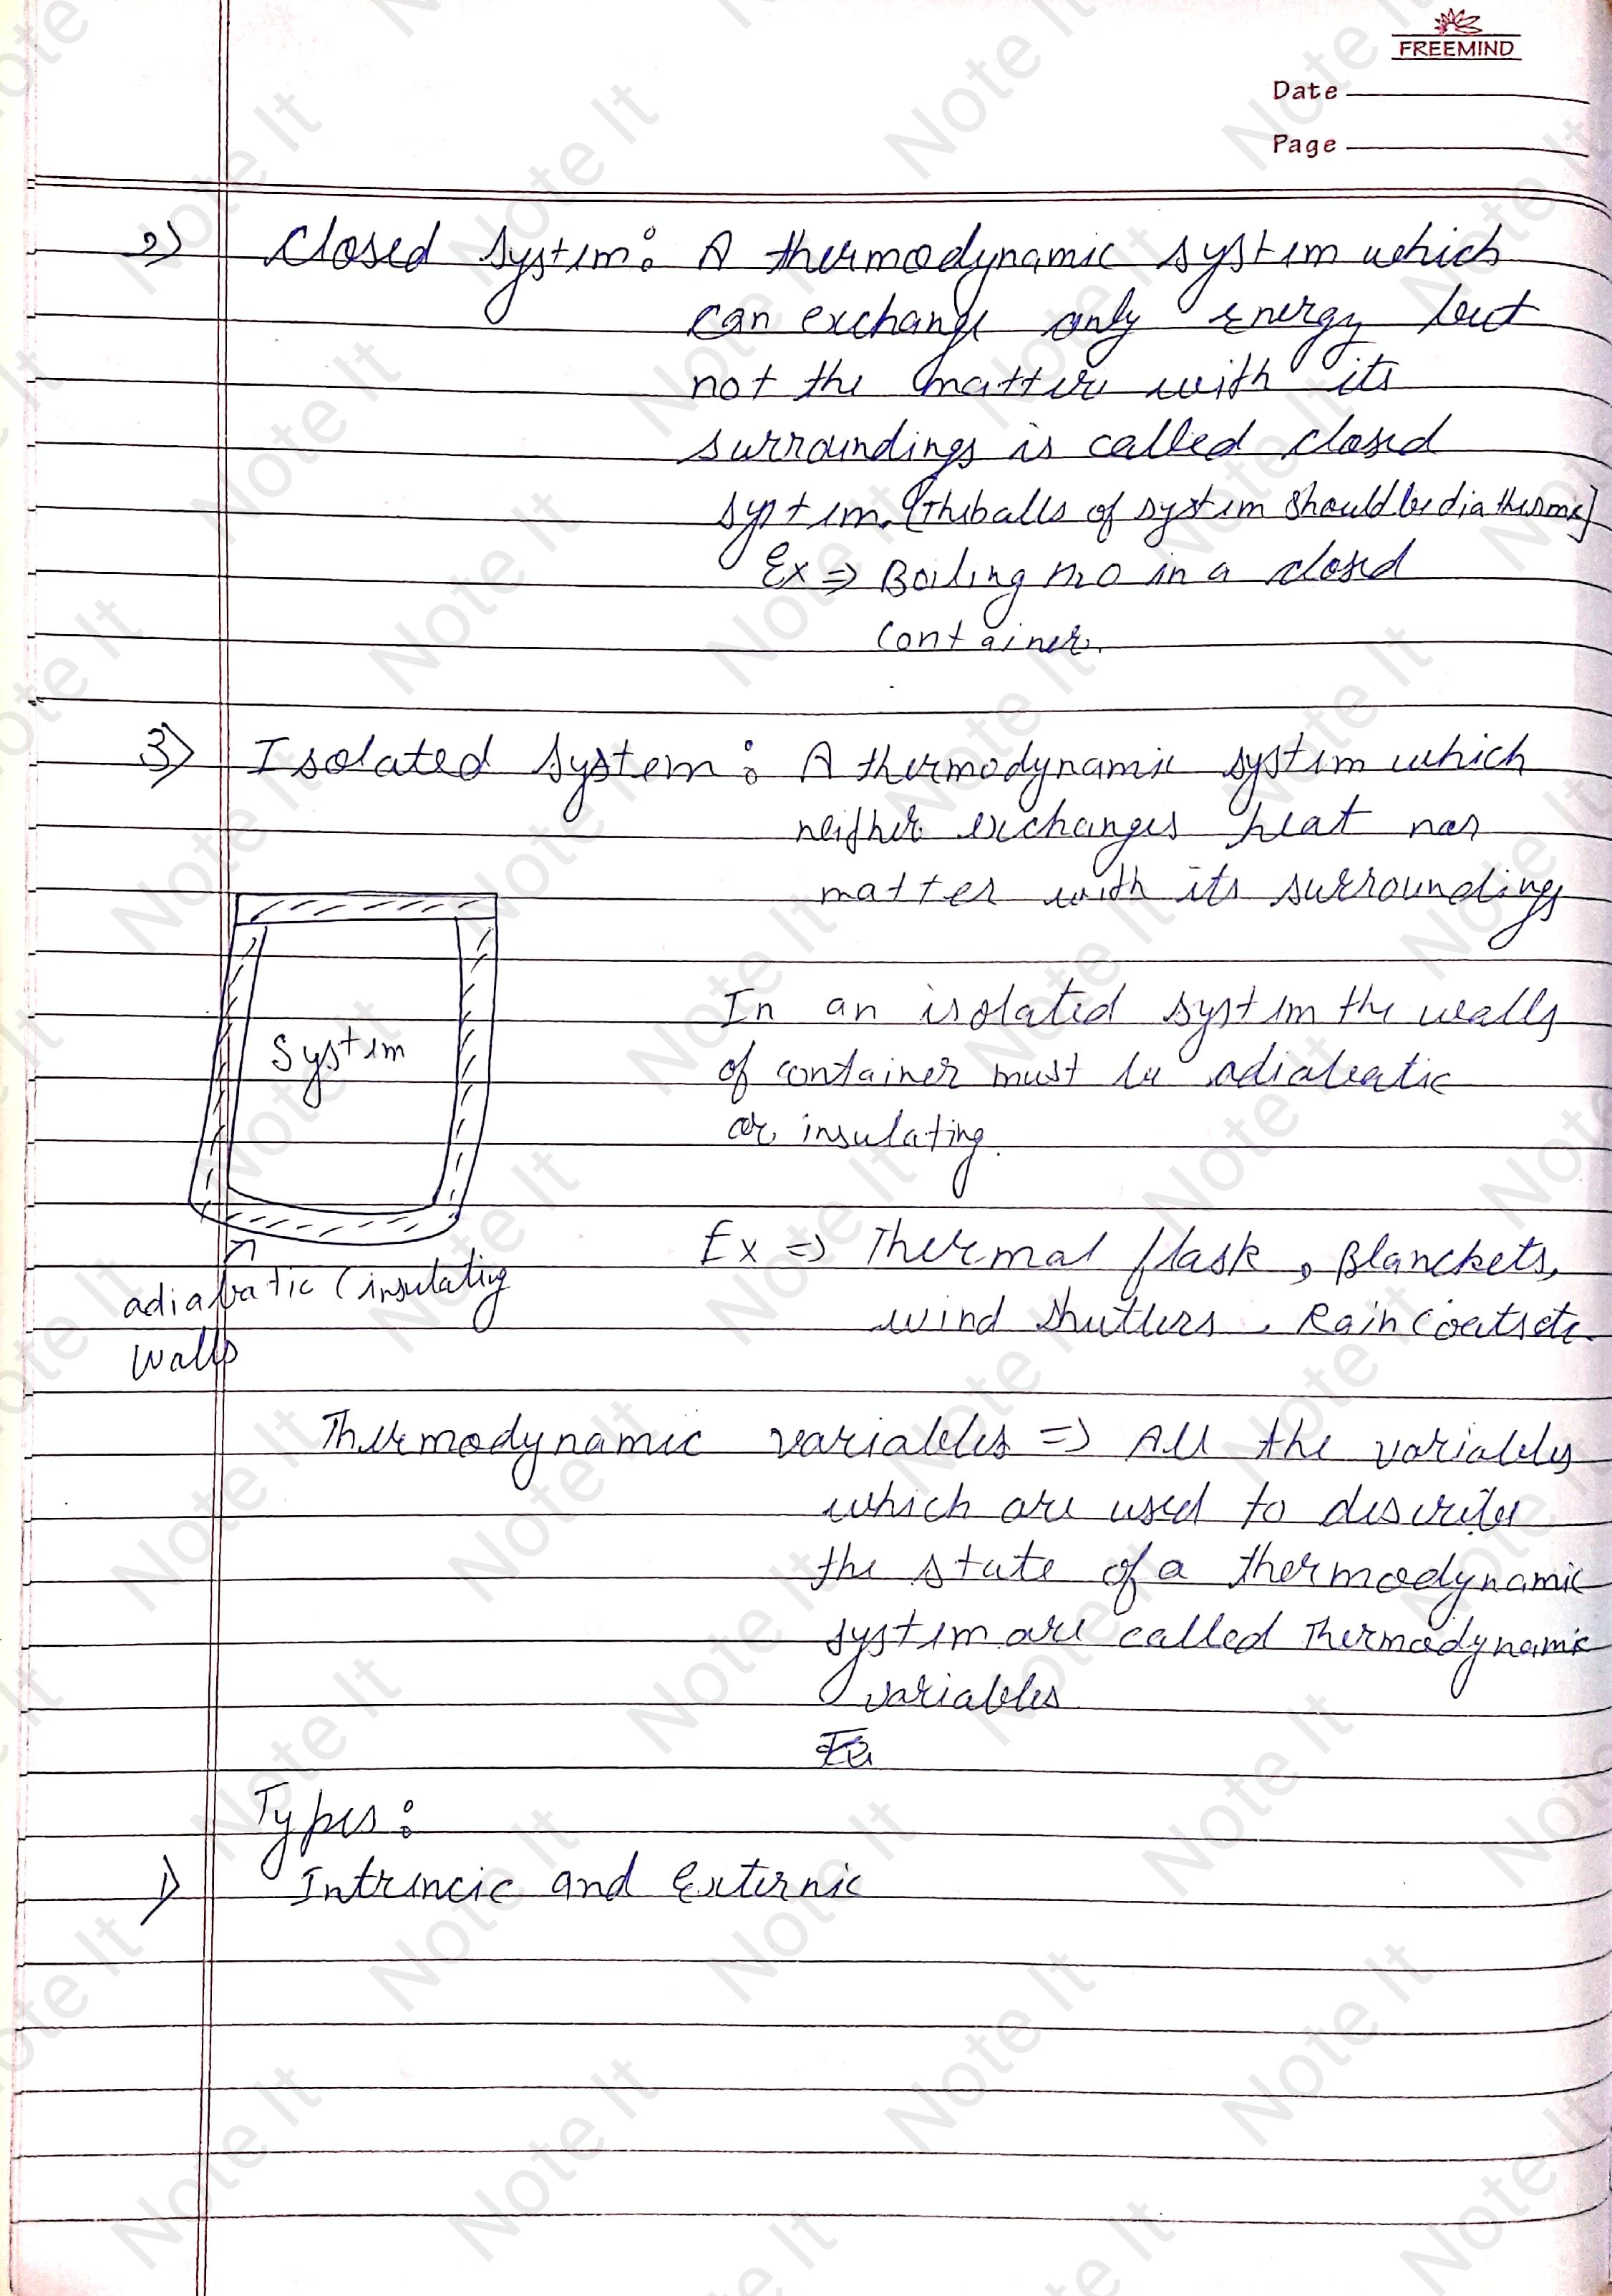 FREEMIND
Date
Page
2) Closed System: A thermodynamic system which
can exchange only energy but
not the matter with its
surroundings is called closed
system. [The balls of system should be diathermic]
Ex => Boiling in a closed
container.
3) Isolated System: A thermodynamic system which
neither exchanges heat nor
matter with its surroundings
In an isolated system the walls
of container must be adiabatic
or insulating.
System
adiabatic (insulating
walls
Ex => Thermal flask, Blanckets,
wind shutters, Rain Coats etc.
Thermodynamic variables => All the variables
which are used to describe
the state of a thermodynamic
system are called Thermodynamic
variables
Types:
1) Intrincic and Externic
Note It